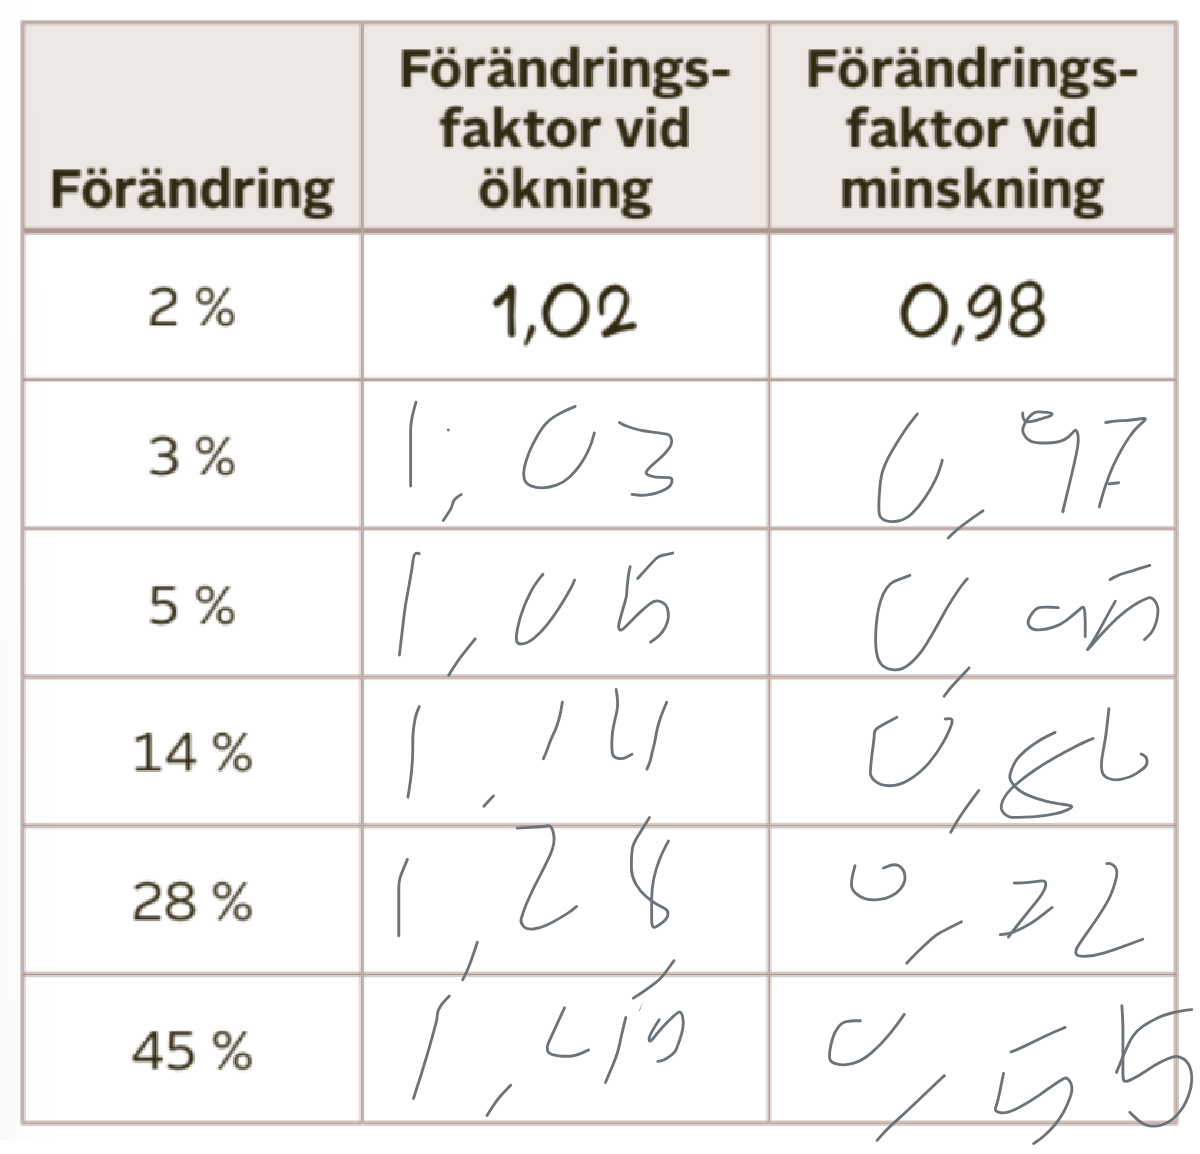 Förändring
Förändrings-
faktor vid
ökning
Förändrings-
faktor vid
minskning
2 % 1,02 0,98
3 % 1,03 0,97
5 % 1,05 0,95
14 % 1,14 0,86
28 % 1,28 0,72
45 % 1,45 0,55